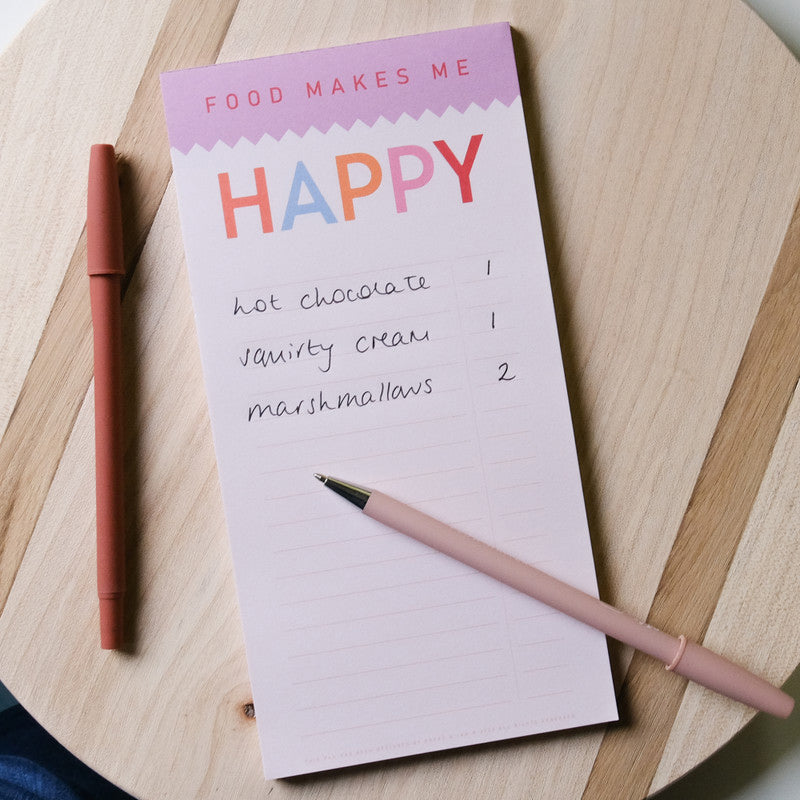 FOOD MAKES ME
HAPPY
hot chocolate 1
squirty cream 1
marshmallows 2